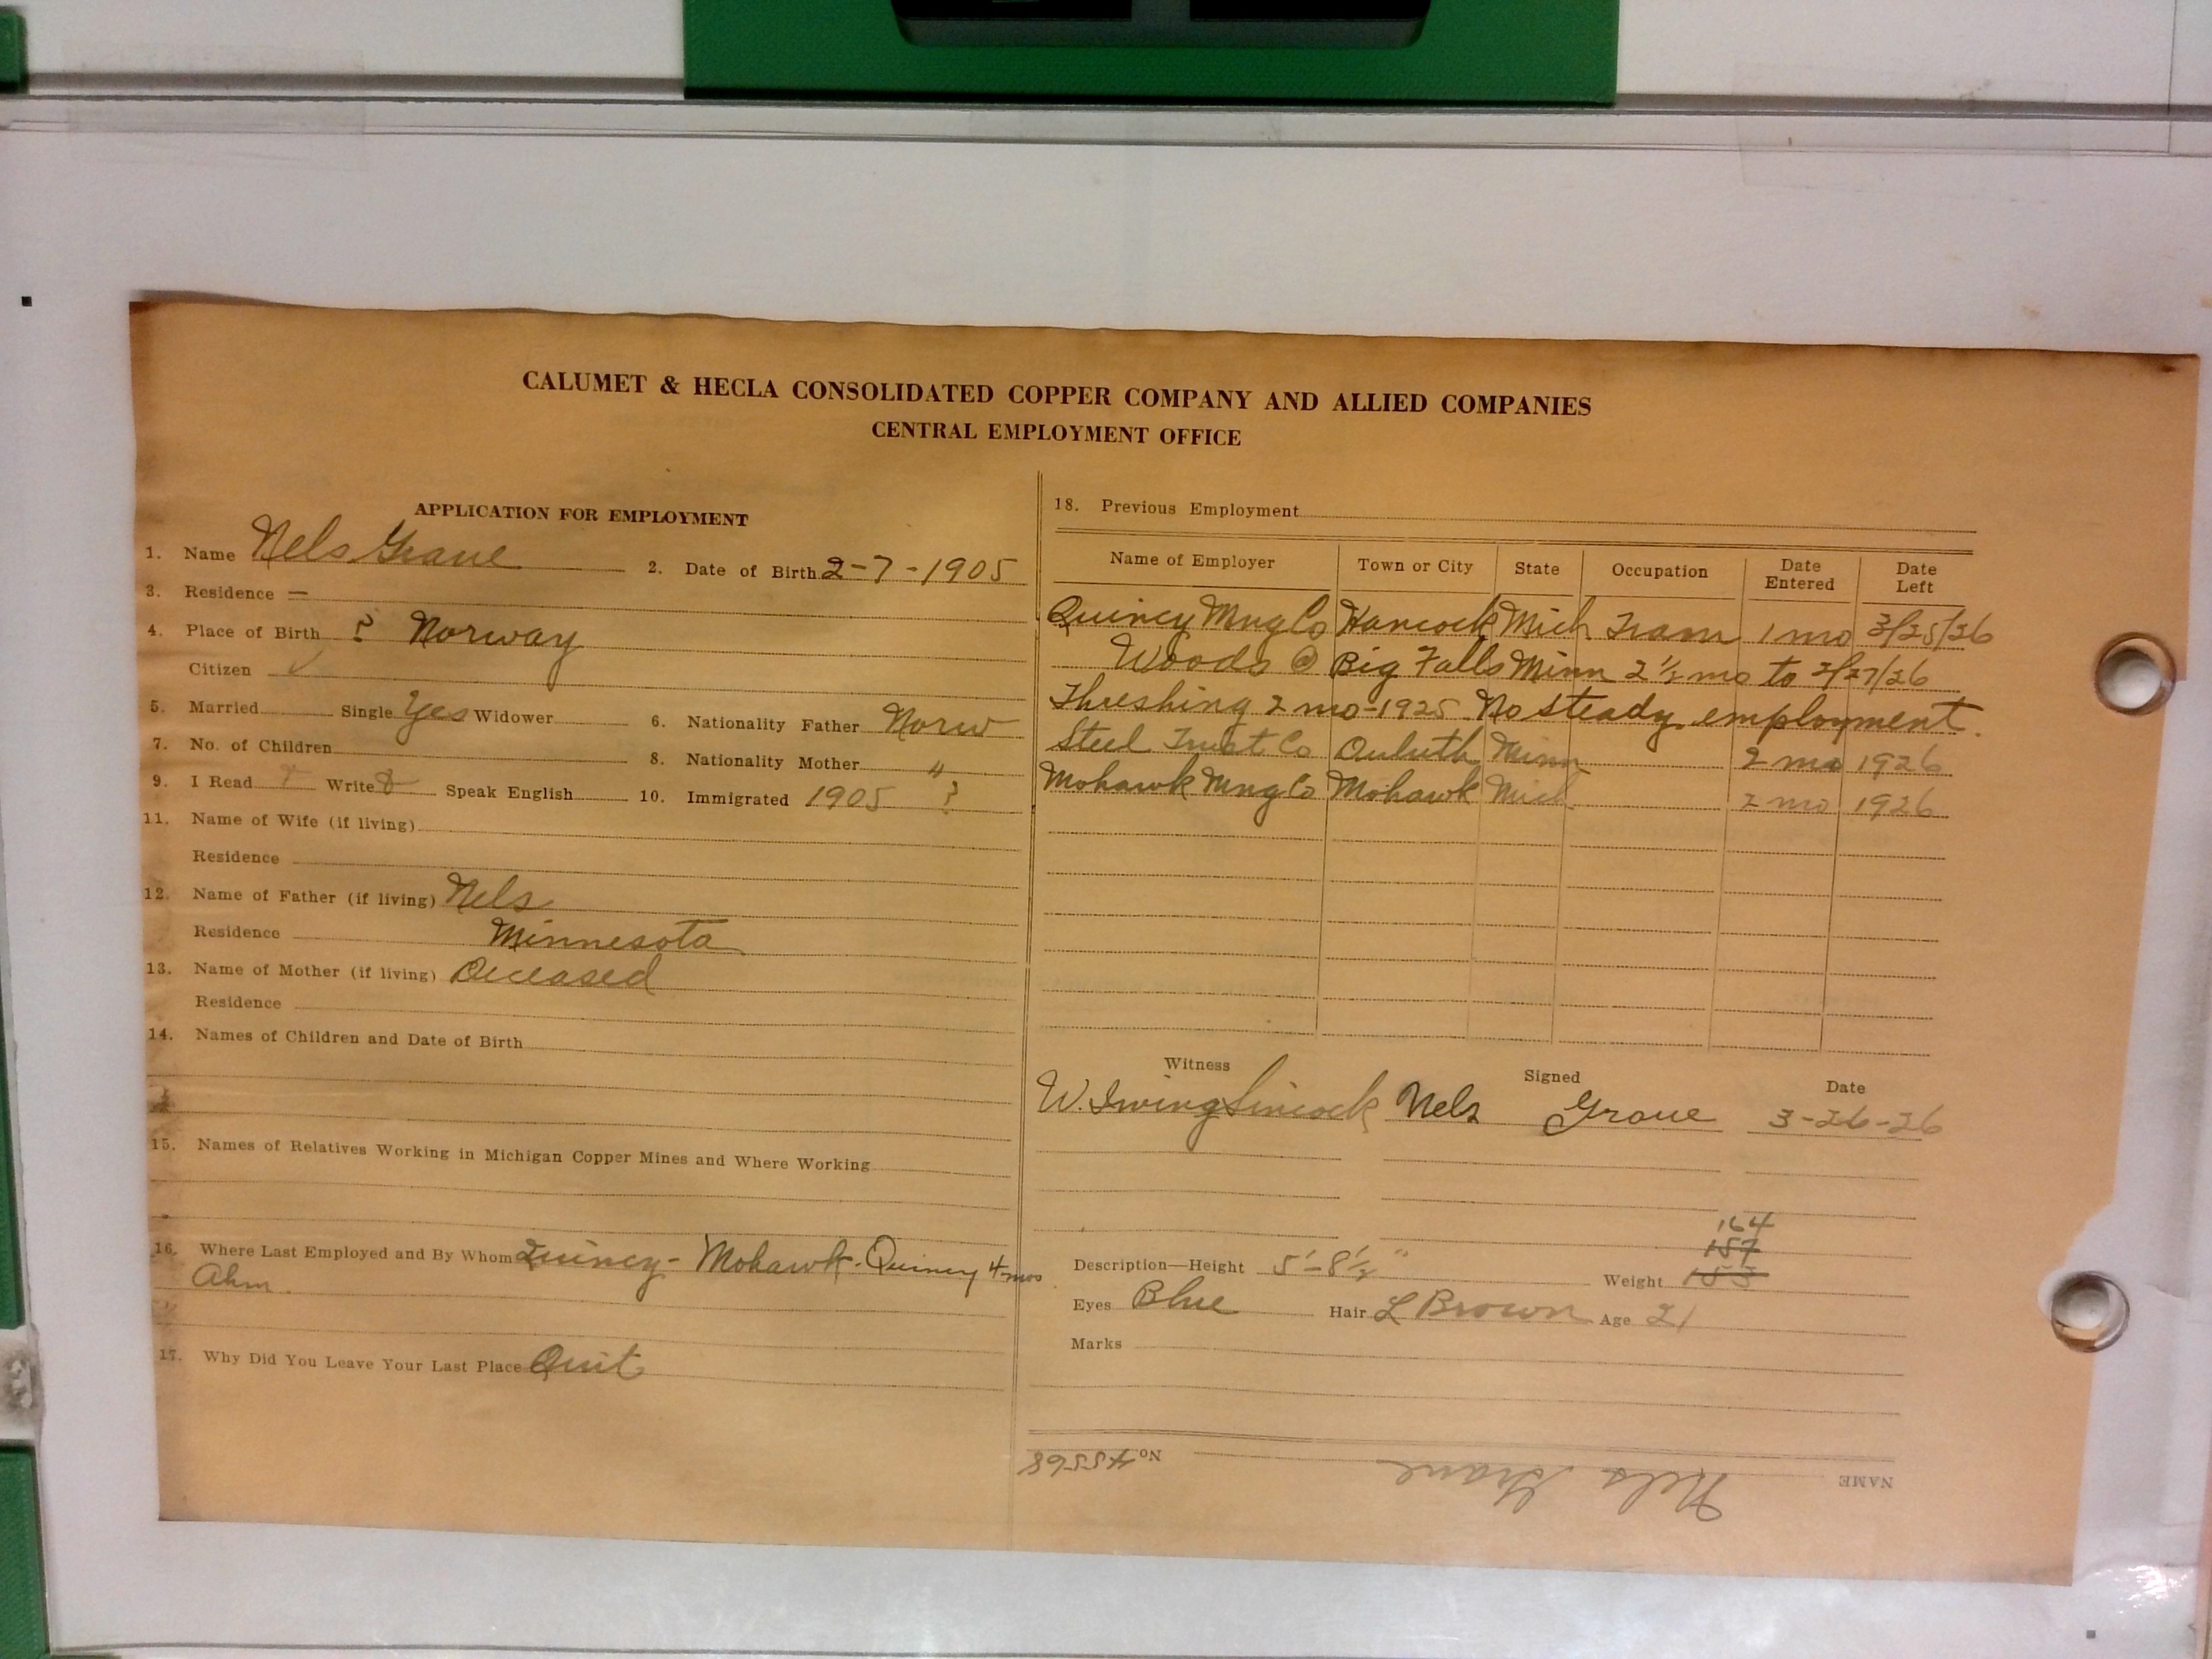 CALUMET & HECLA CONSOLIDATED COPPER COMPANY AND ALLIED COMPANIES
CENTRAL EMPLOYMENT OFFICE
APPLICATION FOR EMPLOYMENT
1. Name Nels Grave 2. Date of Birth 2-7-1905
3. Residence —
4. Place of Birth ? Norway
Citizen ✓
5. Married Single Yes Widower 6. Nationality Father Norw
7. No. of Children 8. Nationality Mother "
9. I Read Write Speak English 10. Immigrated 1905 ?
11. Name of Wife (if living)
Residence
12. Name of Father (if living) Nels
Residence Minnesota
13. Name of Mother (if living) Deceased
Residence
14. Names of Children and Date of Birth
15. Names of Relatives Working in Michigan Copper Mines and Where Working
16. Where Last Employed and By Whom Quincy - Mohawk - Quincy 4 mos
Ahm.
17. Why Did You Leave Your Last Place Quit
18. Previous Employment
Name of Employer Town or City State Occupation Date Entered Date Left
Quincy Mng Co Hancock Mich Tram 1 mo 3/25/26
Woods @ Big Falls Minn 2 1/2 mo to 2/27/26
Threshing 2 mo - 1925 No steady employment.
Steel Trust Co Duluth Minn 2 mo 1926
Mohawk Mng Co Mohawk Mich 2 mo 1926
Witness Signed Date
W. Irving Sincock Nels Grove 3-26-26
164
157
Description—Height 5'-8 1/2" Weight 153
Eyes Blue Hair L Brown Age 21
Marks
NAME Nels Grave No 45568